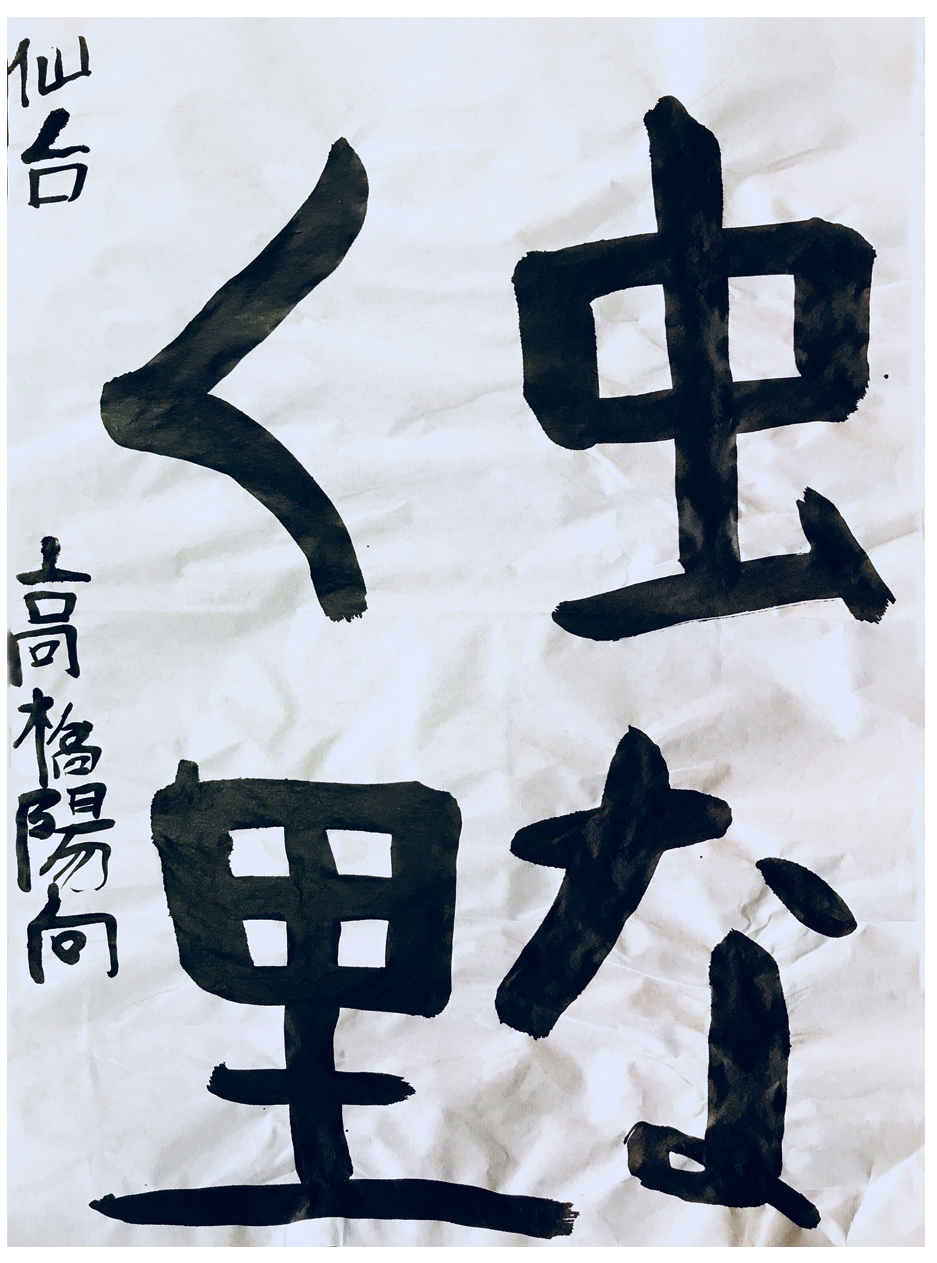 虫な
く里
仙台 高橋陽向